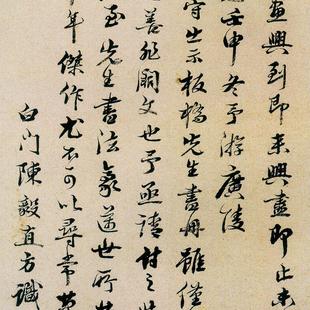 画興到即来興盡即止未
壬申冬予游廣陵
守出示板橋先生書冊雖僅
善非闕文也予亟請付之
先生書法豪邁世所
年傑作尤不可以尋常
白门陳毅直方識